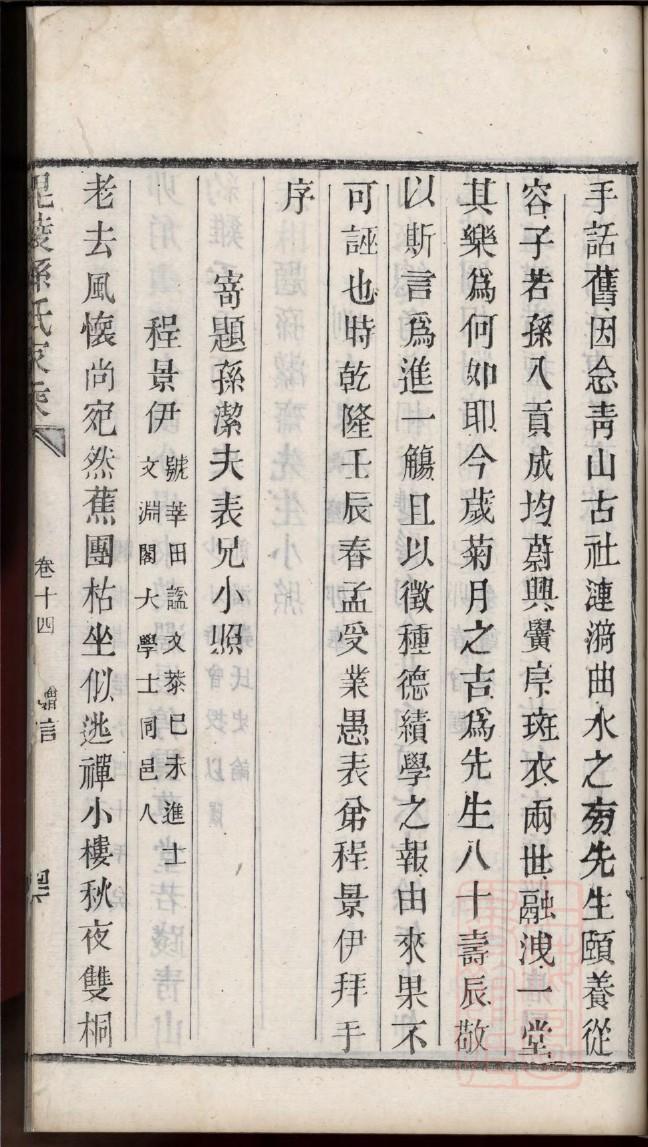 手話舊因念青山古社漣漪曲水之旁先生頤養從
容子若孫入貢成均蔚興黌序斑衣兩世融洩一堂
其樂為何如耶今歲菊月之吉為先生八十壽辰敬
以斯言為進一觴且以徵種德績學之報由來果不
可誣也時乾隆壬辰春孟受業愚表弟程景伊拜手
序
寄題孫潔夫表兄小照
程景伊 號莘田諡文恭已未進士
文淵閣大學士同邑人
老去風懷尚宛然蕉團枯坐似逃禪小樓秋夜雙桐
毘陵孫氏家乘
卷十四